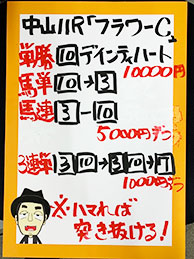 中山11R「フラワーC」
単勝 10 デインティハート
10000円
馬単 10→3
馬連 3-10
5000円ずつ
3連単 3 10→3 10→7
1000円ずつ
※ハマれば
突き抜ける!